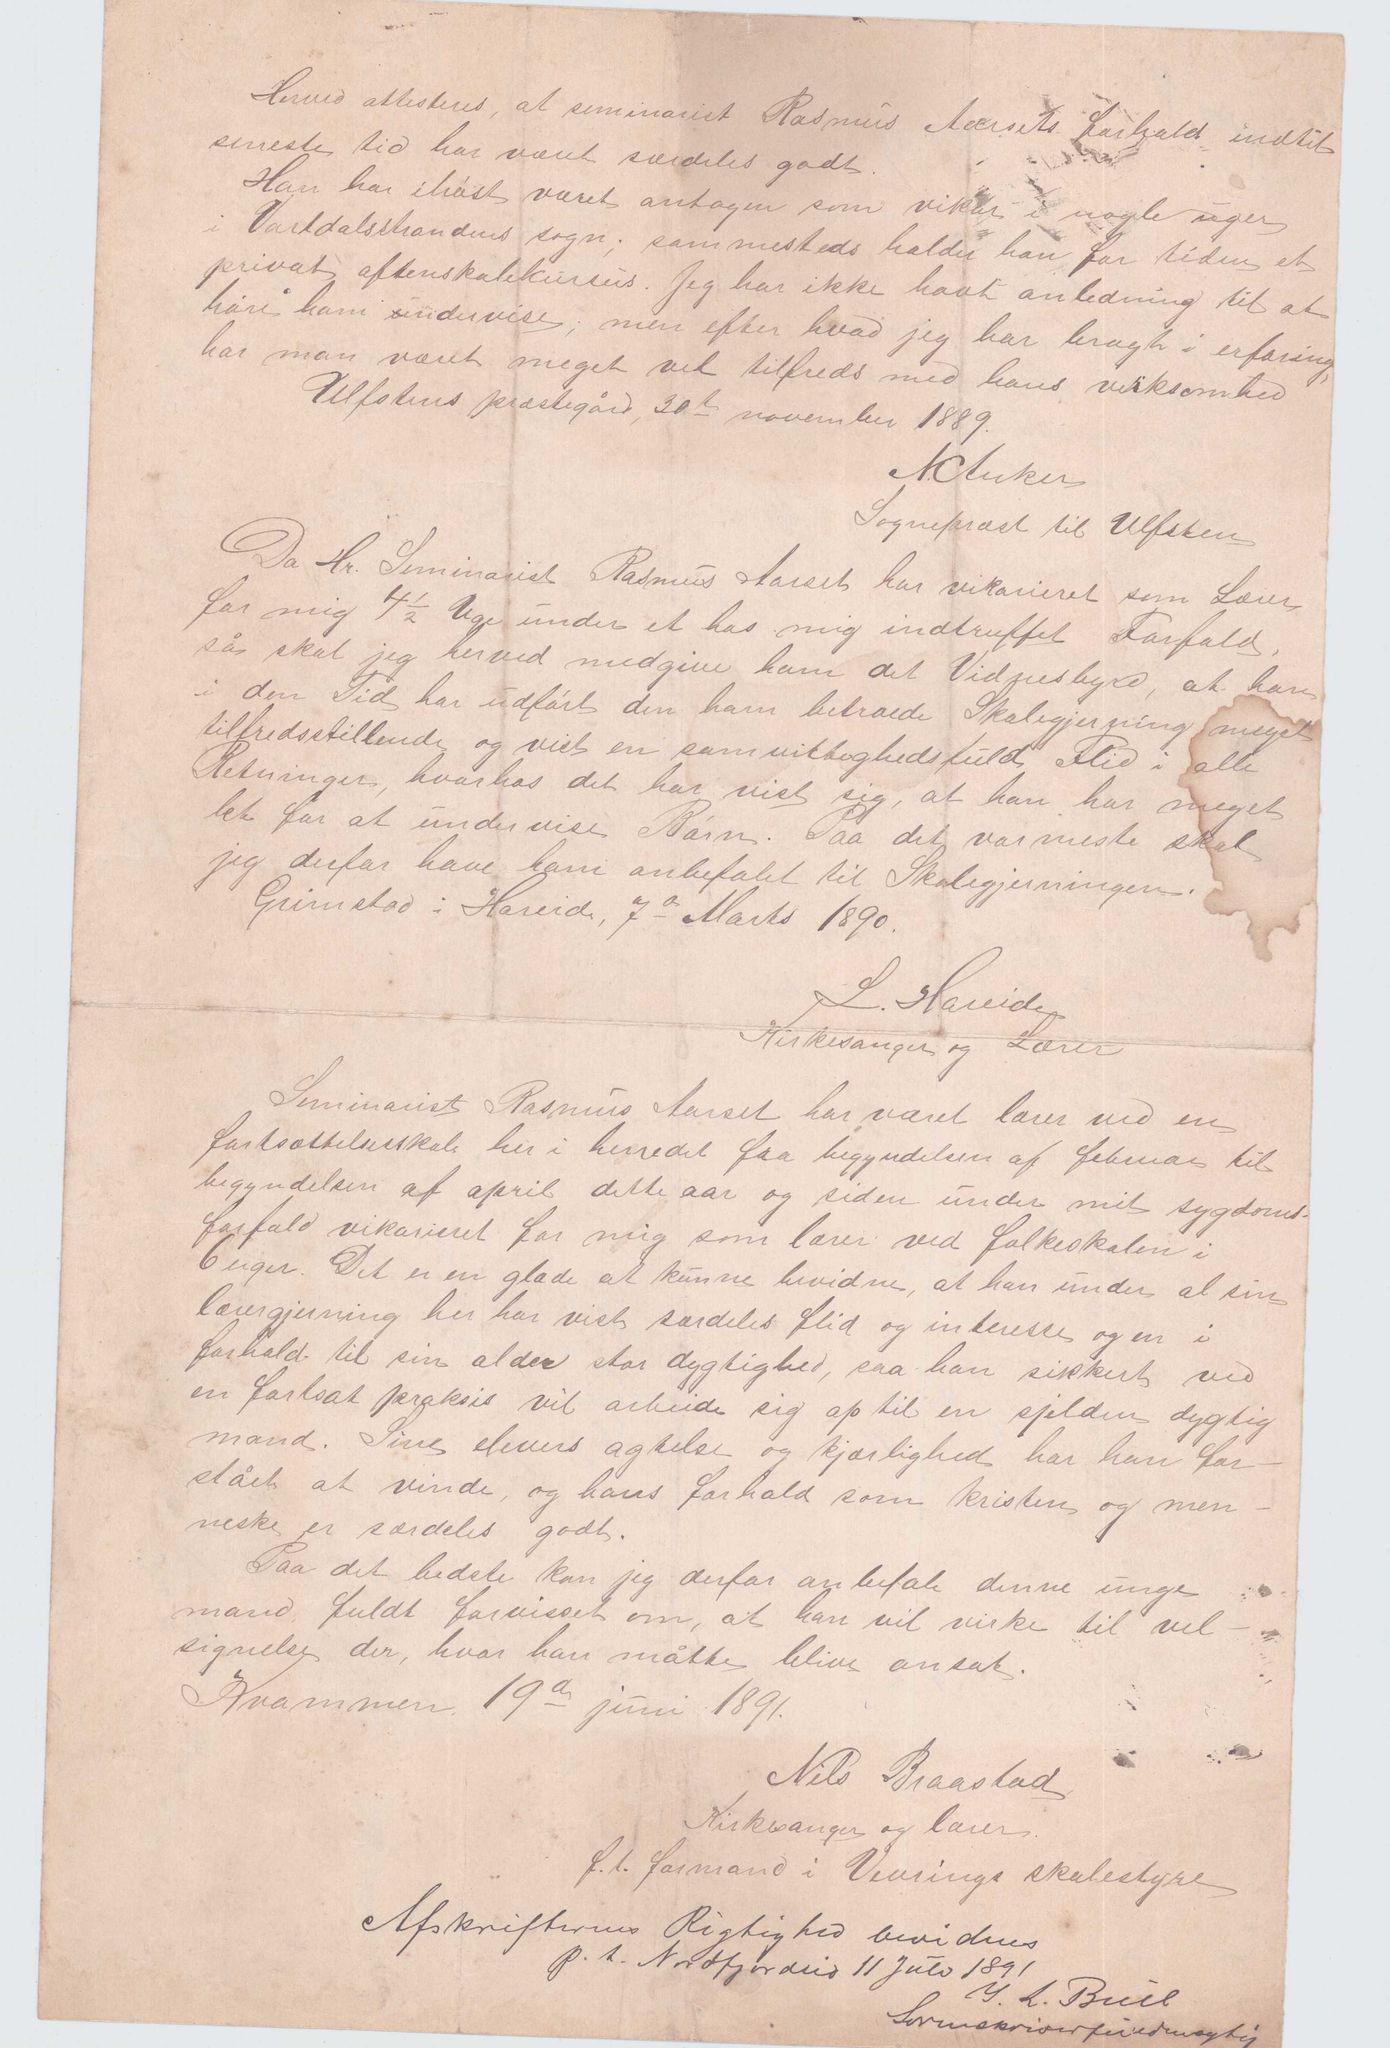 Herved attesteres, at seminarist Rasmus Aarsets forhold indtil
seneste tid har været særdeles godt.
Han har ihøst været antagen som vikar i nogle uger
i Vartdalsstrandens sogn; sammesteds holder han for tiden et
privat aftenskolekursus. Jeg har ikke havt anledning til at
høre ham undervise; men efter hvad jeg har bragt i erfaring,
har man været meget vel tilfreds med hans virksomhed
Ulfstens præstegård, 30te november 1889.
N. Anker
Sognepræst til Ulfsten
Da Hr. Seminarist Rasmus Aarset har vikarieret som Lærer
for mig 4½ Uge under et hos mig indtruffet Forfald,
så skal jeg herved medgive ham det Vidnesbyrd, at han
i den Tid har udført den ham betroede Skolegjerning meget
tilfredsstillende og vist en samvittoghedsfuld Flid i alle
Retninger, hvorhos det har vist sig, at han har meget
let for at undervise Børn. Paa det varmeste skal
jeg derfor have ham anbefalet til Skolegjerningen.
Grimstad i Hareide, 7de Marts 1890.
L. Hareide
Kirkesanger og Lærer
Seminarist Rasmus Aarset har været lærer ved en
fortsættelsesskole her i herredet fra begyndelsen af februar til
begyndelsen af april dette aar og siden under mit sygdoms-
forfald vikarieret for mig som lærer ved folkeskolen i
6 uger. Det er en glæde at kunne bevidne, at han under al sin
lærergjerning her har vist særdeles flid og interesse og en i
forhold til sin alder stor dygtighed, saa han sikkert ved
en fortsat praksis vil arbeide sig op til en sjelden dygtig
mand. Sine elevers agtelse og kjærlighed har han for-
stået at vinde, og hans forhold som kristen og men-
neske er særdeles godt.
Paa det bedste kan jeg derfor anbefale denne unge
mand, fuldt forvisset om, at han vil virke til vel-
signelse der, hvor han måtte blive ansat.
Kvammen, 19de juni 1891.
Nils Braastad
Kirkesanger og lærer.
f. t. formand i Vevrings skolestyre
Afskrifternes Rigtighed bevidnes
p. t. Nordfjordeid 11 Juli 1891
Y. L. Buel
Sorenskriverfuldmægtig